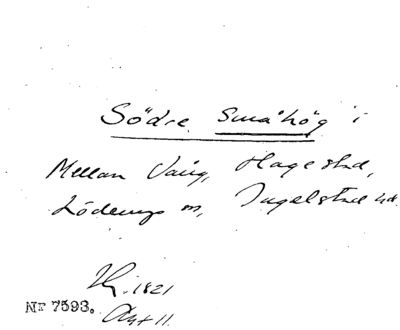 Södre Småhög i
Mellan Vång, Hagestad,
Löderup sn, Ingelstad hd.
1821
Akt 11.
Nr 7593.